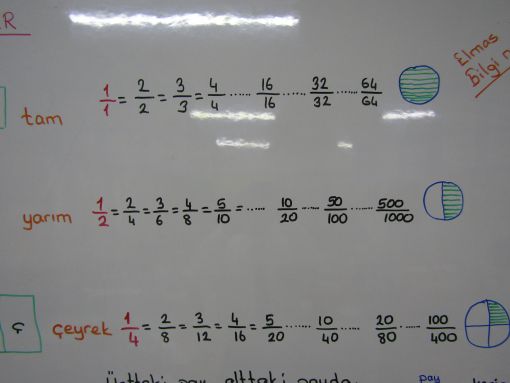 R
Elmas
bilgi
tam 1/1 = 2/2 = 3/3 = 4/4 ...... 16/16 ...... 32/32 ...... 64/64
yarım 1/2 = 2/4 = 3/6 = 4/8 = 5/10 = ...... 10/20 ...... 50/100 ...... 500/1000
ç çeyrek 1/4 = 2/8 = 3/12 = 4/16 = 5/20 ....... 10/40 ...... 20/80 ...... 100/400
Üstteki pay alttaki payda pay